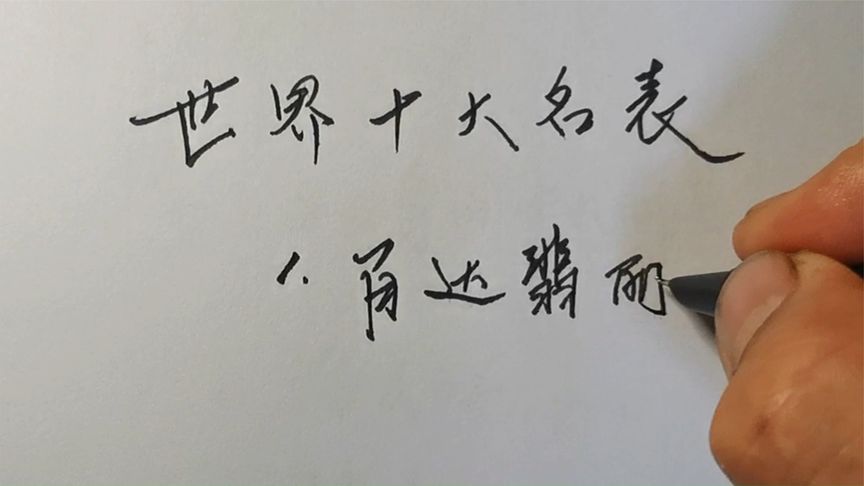 世界十大名表
1.百达翡丽